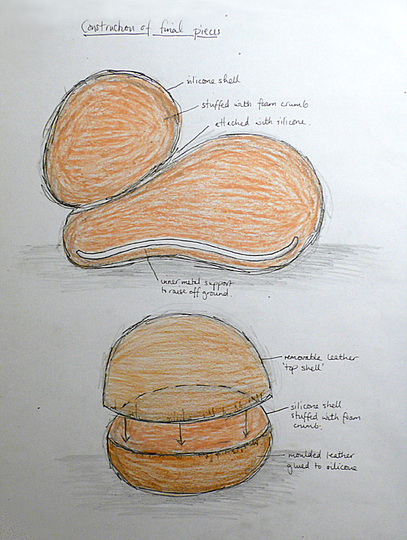 Construction of final pieces
silicone shell
stuffed with foam crumb
attached with silicone.
inner metal support
to raise off ground.
removable leather
'top shell'
silicone shell
stuffed with foam
crumb.
moulded leather
glued to silicone